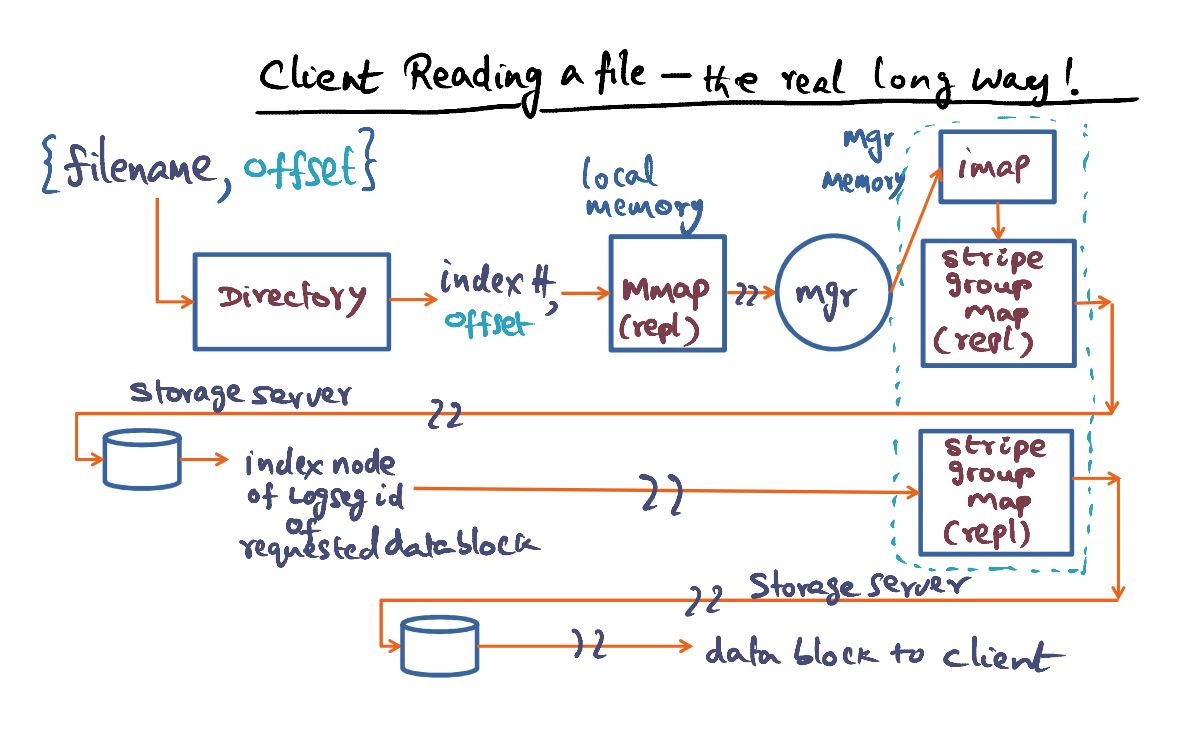 Client Reading a file – the real long way!
{filename, offset}
Directory
index #,
offset
local
memory
Mmap
(repl)
mgr
mgr
memory
imap
stripe
group
map
(repl)
storage server
index node
of Logseg id
of
requested data block
stripe
group
map
(repl)
Storage server
data block to client